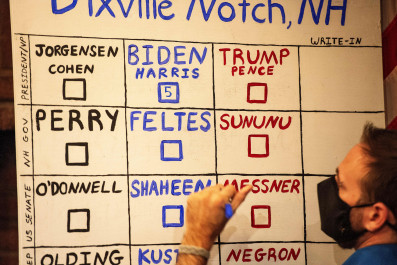 Dixville Notch, NH
WRITE-IN
PRESIDENT/VP
JORGENSEN
COHEN
BIDEN
HARRIS
5
TRUMP
PENCE
NH GOV
PERRY
FELTES
SUNUNU
US SENATE
O'DONNELL
SHAHEEN
MESSNER
OLDING
KUST
NEGRON